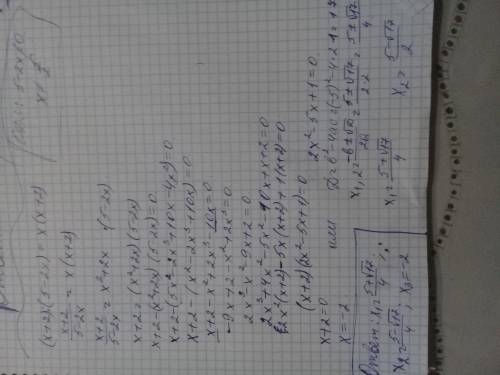 (x+2)(5-2x) = x(x+2)
x+2/5-2x = x(x+2)
x+2/5-2x = x²+2x
x+2 = (x²+2x)(5-2x)
x+2-(x²+2x)(5-2x)=0
x+2-(5x²-2x³+10x-4x²)=0
x+2-(x²-2x³+10x)=0
x+2-x²+2x³-10x=0
-9x+2-x²+2x³=0
2x³-x²-9x+2=0
2x³+4x²-5x²-10x+x+2=0
2x²(x+2)-5x(x+2)+1(x+2)=0
(x+2)(2x²-5x+1)=0
x+2=0 или 2x²-5x+1=0
x=-2 D=b²-4ac=(-5)²-4·2·1=17
x₁,₂=-b±√D/2a=5±√17/2·2=5±√17/4
x₁=5+√17/4 x₂=5-√17/2
Ответ: x₁=5+√17/4;
x₂=5-√17/4; x₃=-2
5-2x≠0
x≠5/2